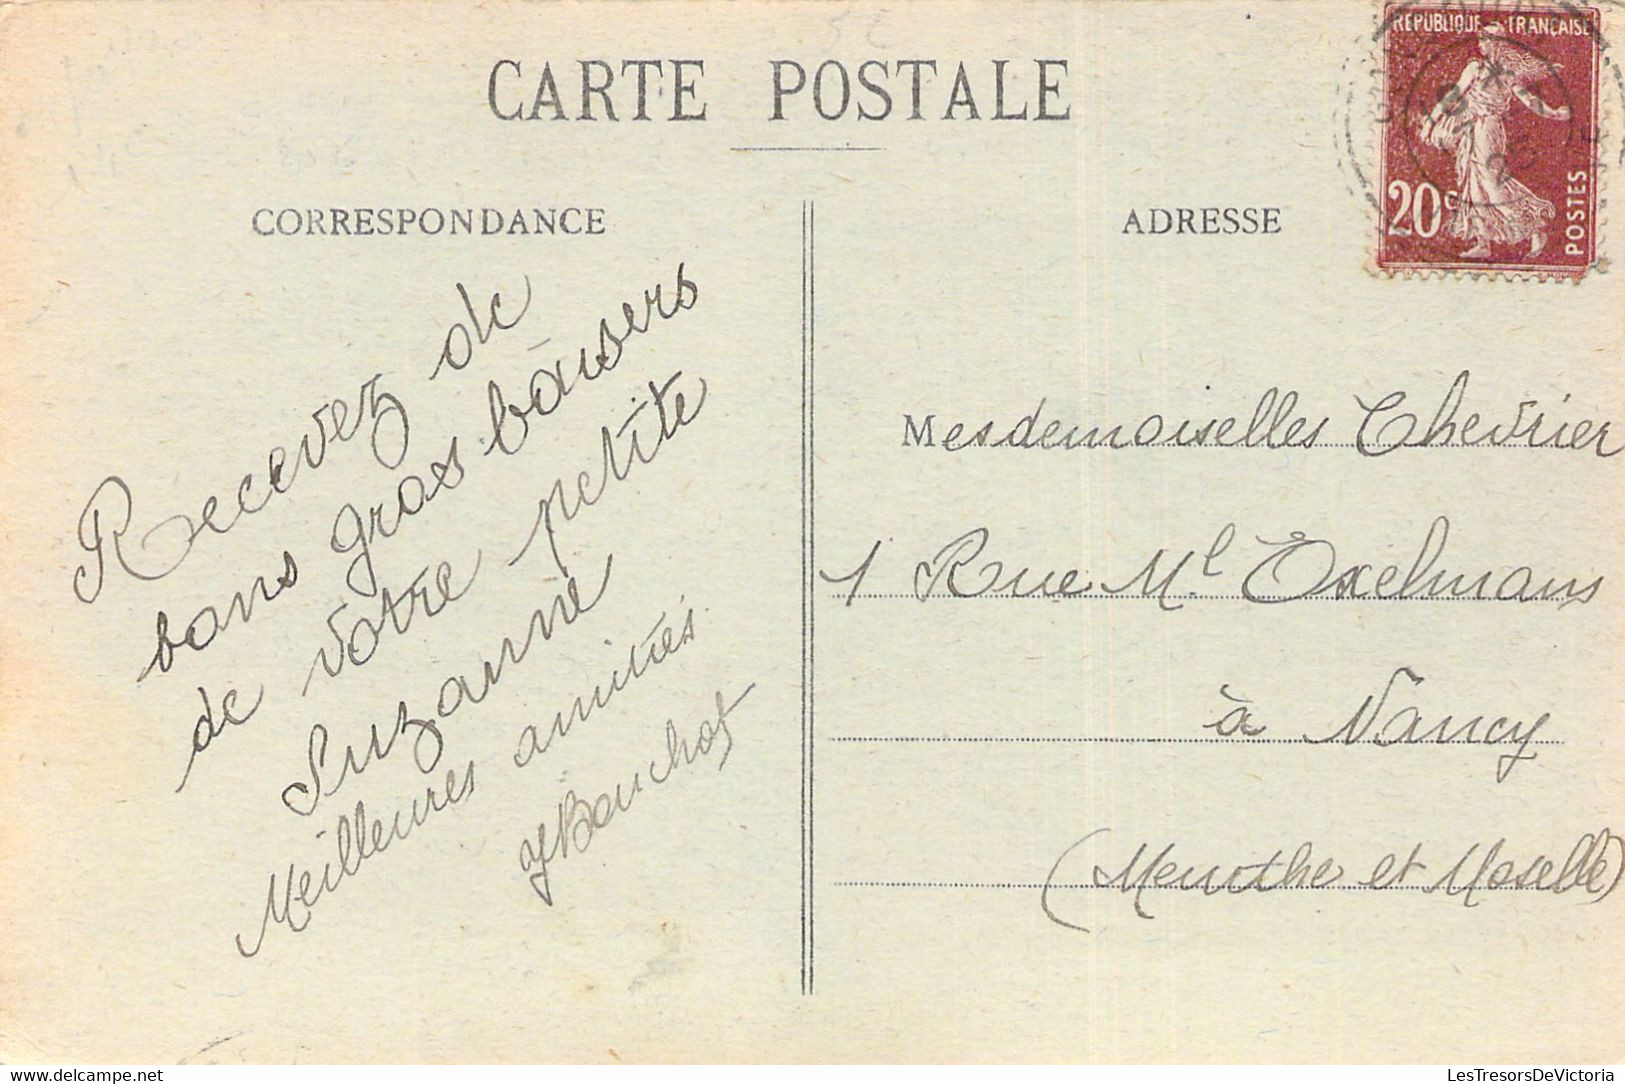 CARTE POSTALE
CORRESPONDANCE
ADRESSE
RÉPUBLIQUE FRANÇAISE
20c
POSTES
Recevez de
bons gros baisers
de votre petite
Suzanne
Meilleures amitiés
Bouchot
Mesdemoiselles Chevrier
1 Rue Ml Exelmans
à Nancy
(Meurthe et Moselle)
www.delcampe.net
LesTresorsDeVictoria